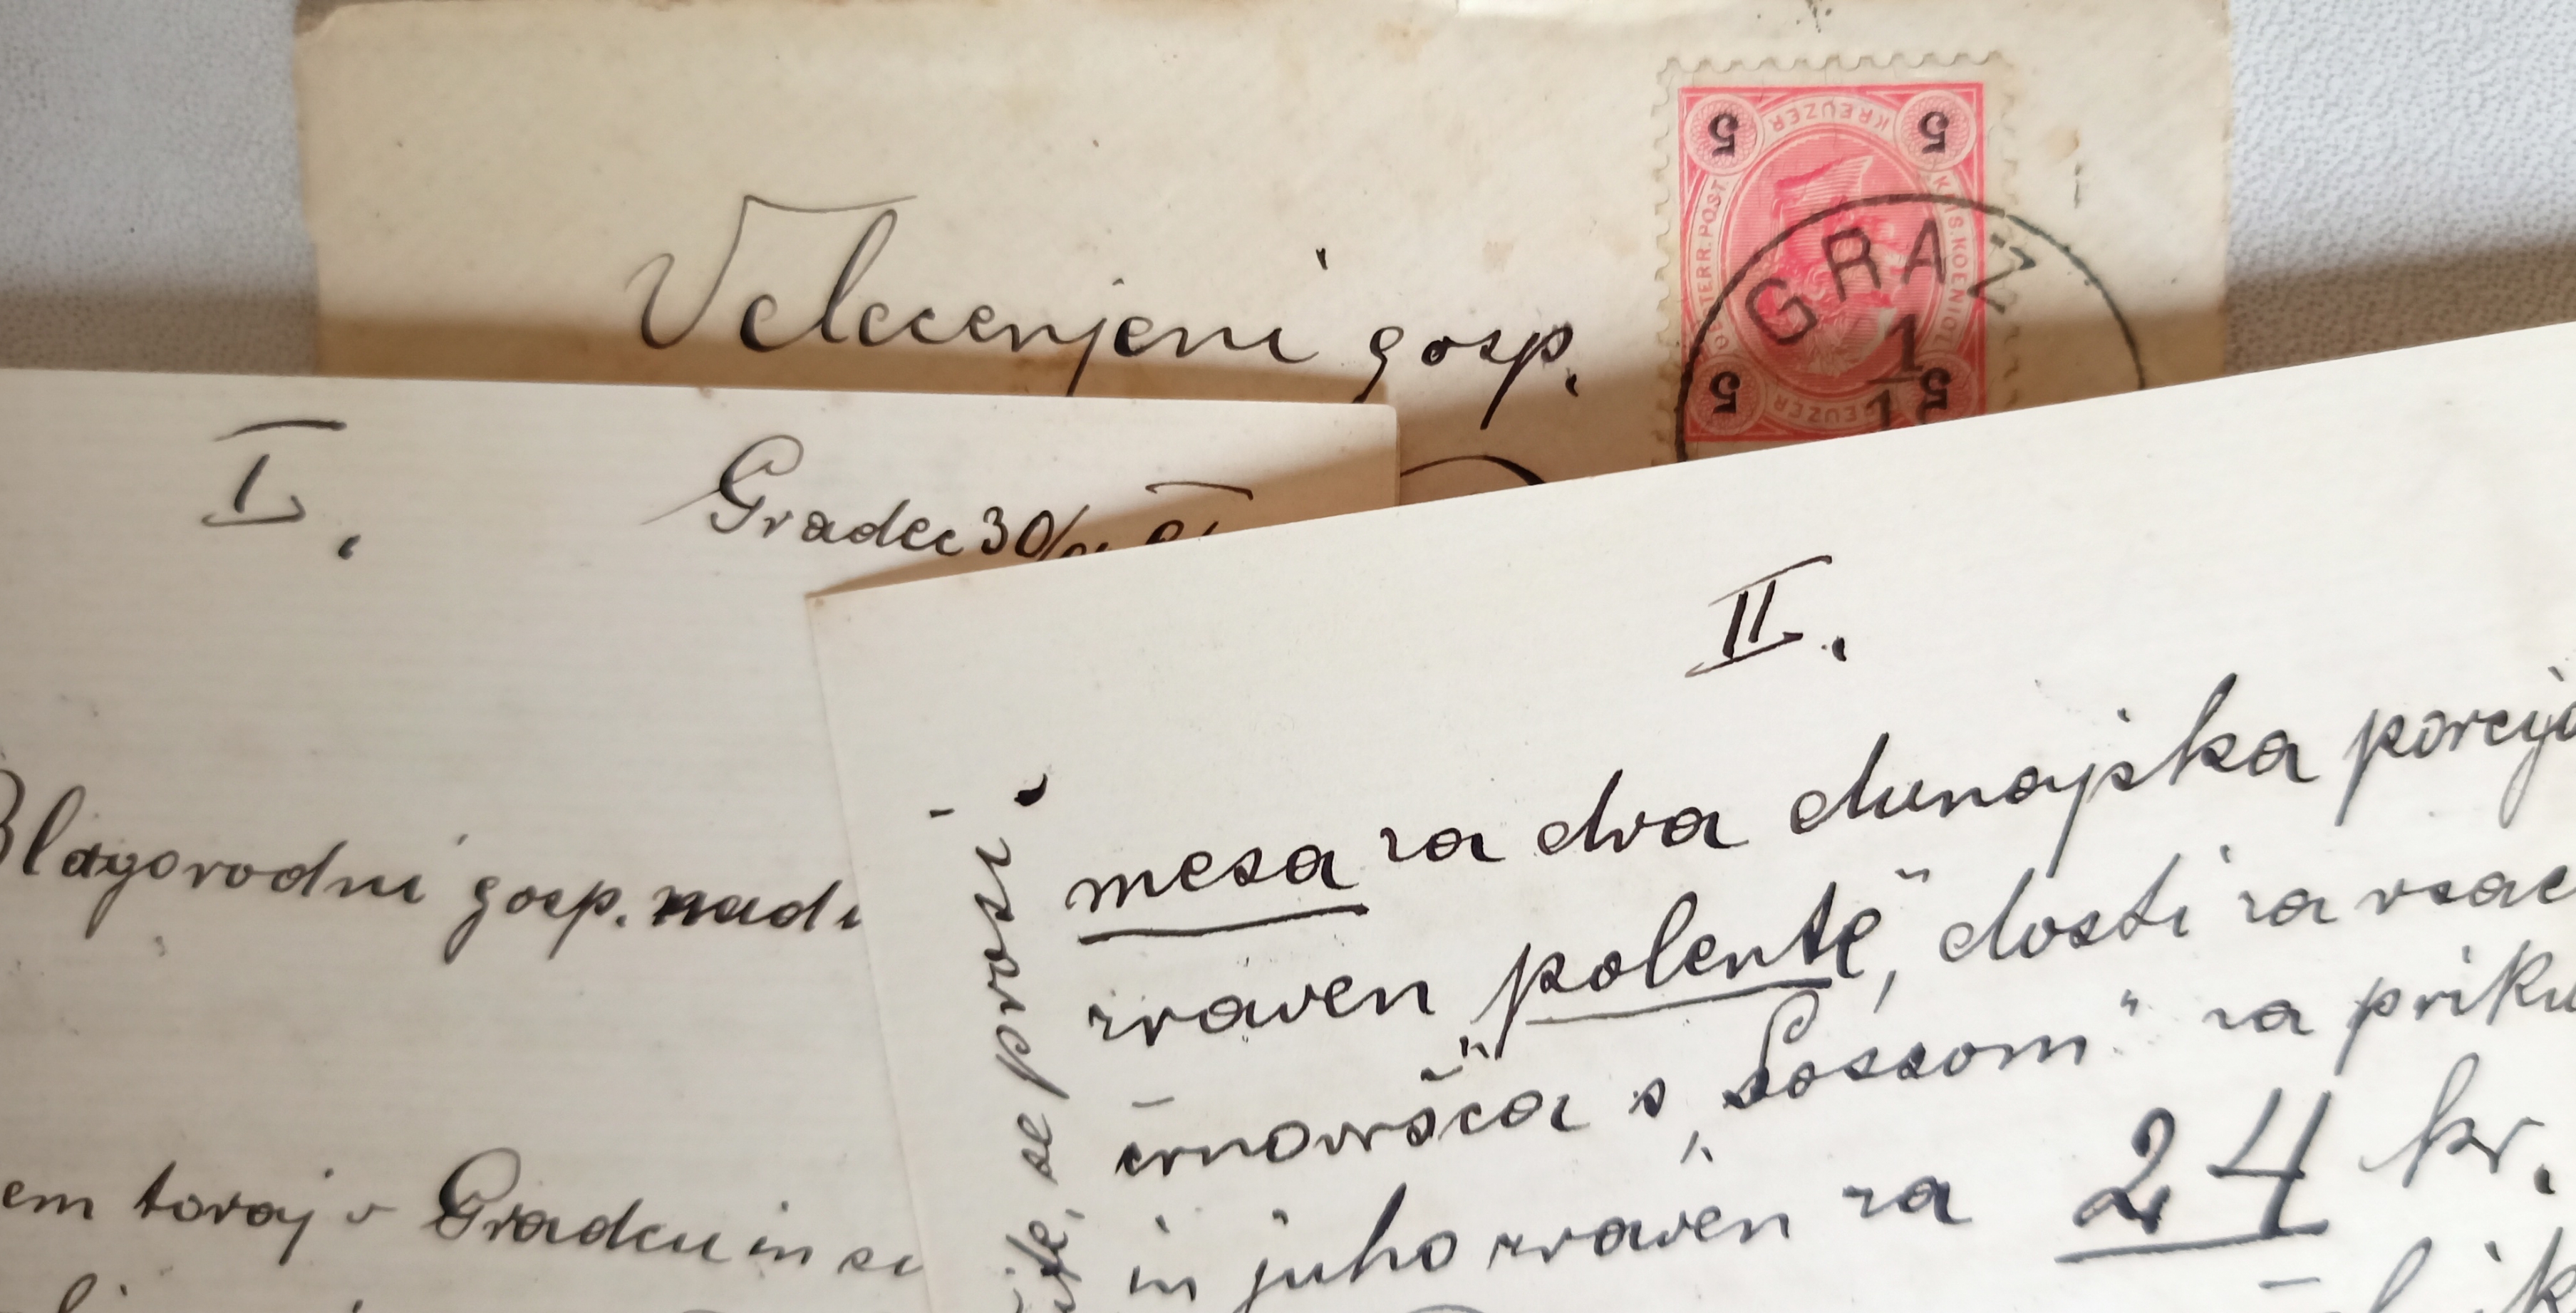 Velecenjeni gosp.
5 KREUZER 5
GRAZ
1
5 KREUZER 5
I.
Gradec 30/
Blagorodni gosp. nad
em toraj v Gradcu in se
II.
mesa za dva dunajska porcij
zraven „polente“, dosti za vsac
črnovršca s „Sossom“ za priku
in juho zraven za 24 kr.
se prosi.